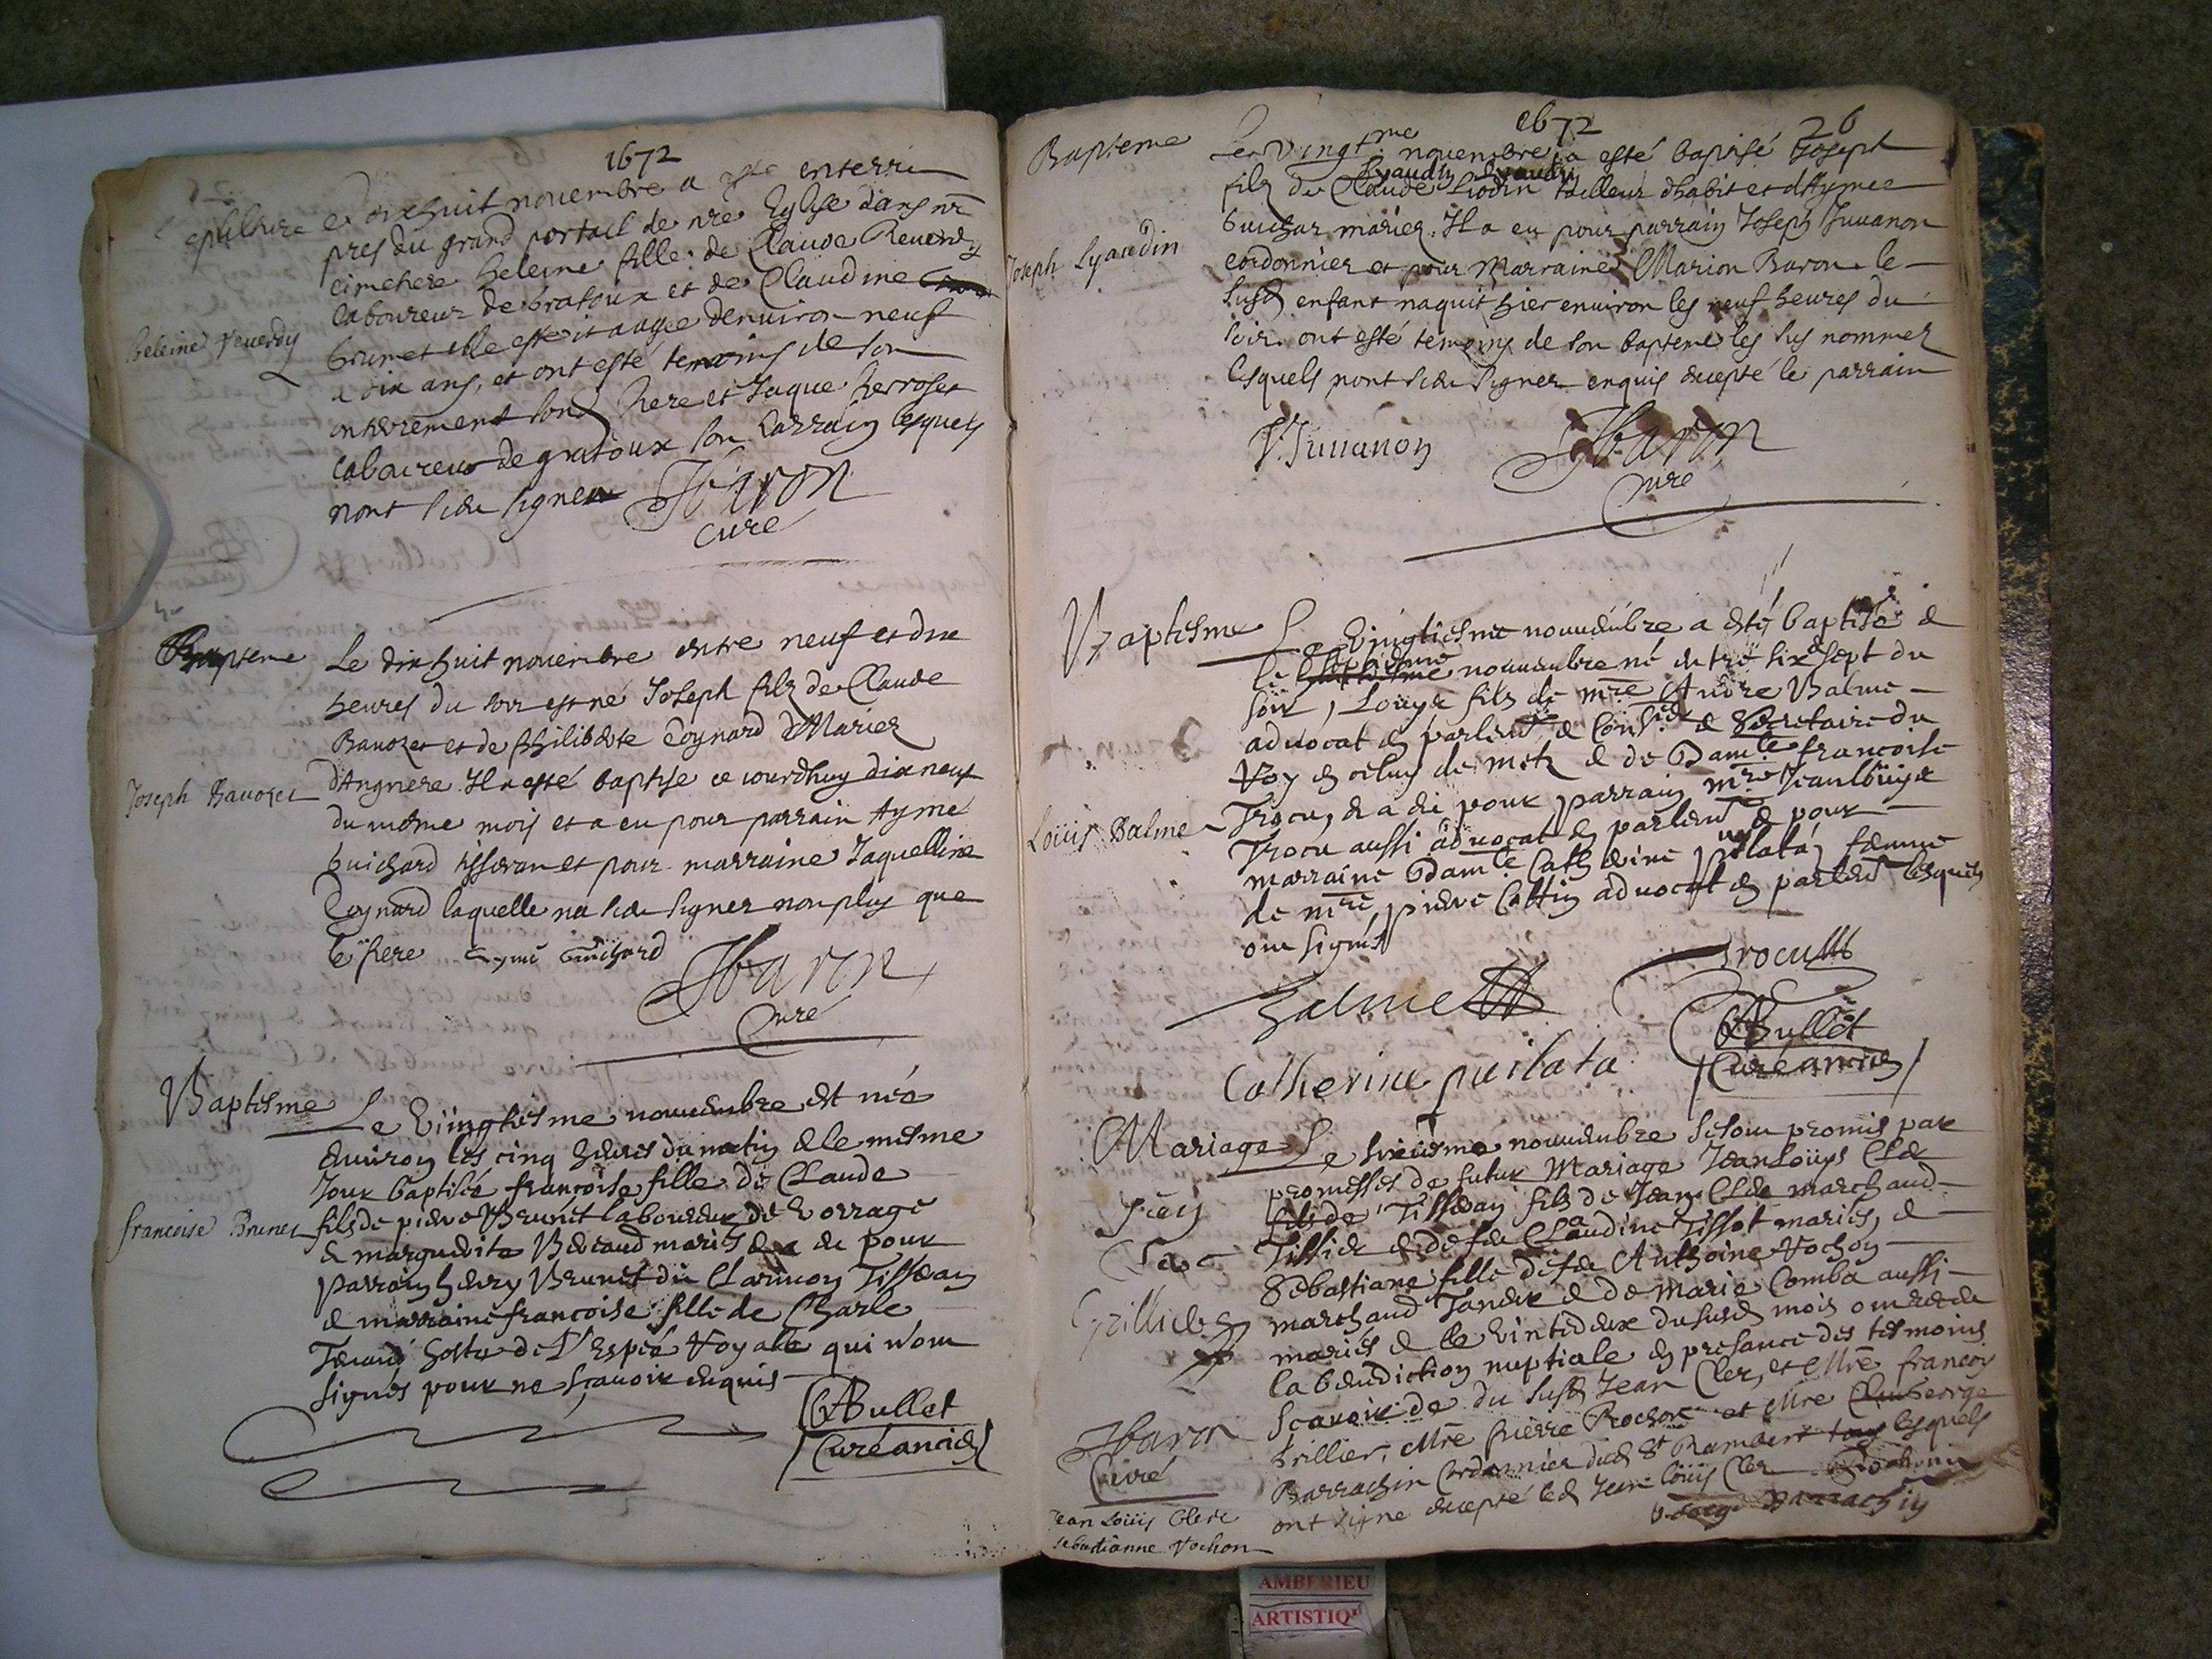 1672
epulture
e dixhuit novembre a esté enterré
pres du grand portail de nre Eglise dans nre
cimetiere heleine fille de Claude Reverdy
laboureur de gratoux et de Claudine
brunet elle estoit aagée denviron neuf
a dix ans, et ont esté temoins de son
enterrement sond pere et Jaque perroset
laboureur de gratoux son parrain lesquels
nont sceu signer
heleine reverdy
JBaron
Curé
Bapteme
Le dixhuit novembre entre neuf et dix
heures du soir est né Joseph filz de Claude
Bavozet et de philiberte Coynard Mariez
d'Angnere Il a esté baptise ce iourdhuy dix neuf
du même mois et a eu pour parrain Aymé
Guichard tisseran et pour marraine Jaquelline
Coynard laquelle na sceu signer non plus que
le pere aymé Guichard
Joseph Bavozet
JBaron
Curé
Baptesme
Le Viingtiesme nouuembre est née
enuiron les cinq heures du matin & le mesme
Jour baptisée françoise fille de Claude
fils de pierre Brunet laboureur de
& marguerite mariés & a eu pour
parrain henry Brunet dit Clarinon Tisseran
& marraine francoise fille de Charle
hoste de L'Espée Royalle qui n'ont
signés pour ne sçauoir enquis
francoise Brunet
CABullet
Curéancien
1672
26
Bapteme
Le vingt.me novembre a esté baptisé Joseph
Lyaudin Lyaudin
filz de Claude Liodin tailleur dhabit et dAymee
Guichar mariez. Il a eu pour parrain Joseph Juvanon
cordonnier et pour Marraine Marion Baron. le
susd enfant naquit hier environ les neuf heures du
soir. ont esté temoins de son bapteme les sus nommez
lesquels nont sceu signer enquis excepté le parrain
Joseph Lyaudin
J. Juuanon
JBaron
Curé
Baptesme
Le Vingtiesme nouuembre a esté baptisé &
le septiesme nouuembre né entre six & sept du
soir, Louys fils de mre Andre Balme
aduocat en parlemt & Consier & Secretaire du
Roy en celuy de metz & de Damlle francoise
Trocu, & a eu pour parrain mre Jeanlouys
Trocu aussi aduocat en parlemt & pour
marraine Damlle Catherine puilata femme
de mre pierre Cattin aduocat en parlemt lesquels
ont signés
Loüis Balme
Balme
Trocu
Catherine puilata
CABullet
Curéancien
Mariage
Le sixiesme nouuembre se sont promis par
promesses de futur Mariage Jeanlouys Cler
fils de Tisseran fils de Jean Cler marchand
Tissier & de fue Claudine Tissot mariés, &
Sebastiane fille de fu Anthoine Rochon
marchand Taneur & de marie Comba aussi
mariés & le vintedeux du susd mois ont receu
la benediction nuptiale en presance des tesmoins
Scavoir de du susd Jean Cler, et Mre françoy
trillier, Mre pierre Rochon et Mre George
Barrachin Cordonnier dud St Rambert tous lesquels
ont signé excepté led Jean louis Cler
JBaron
Curé
Jean Loüis Clerc
sebastianne rochon
Barrachin
AMBERIEU
ARTISTIQU